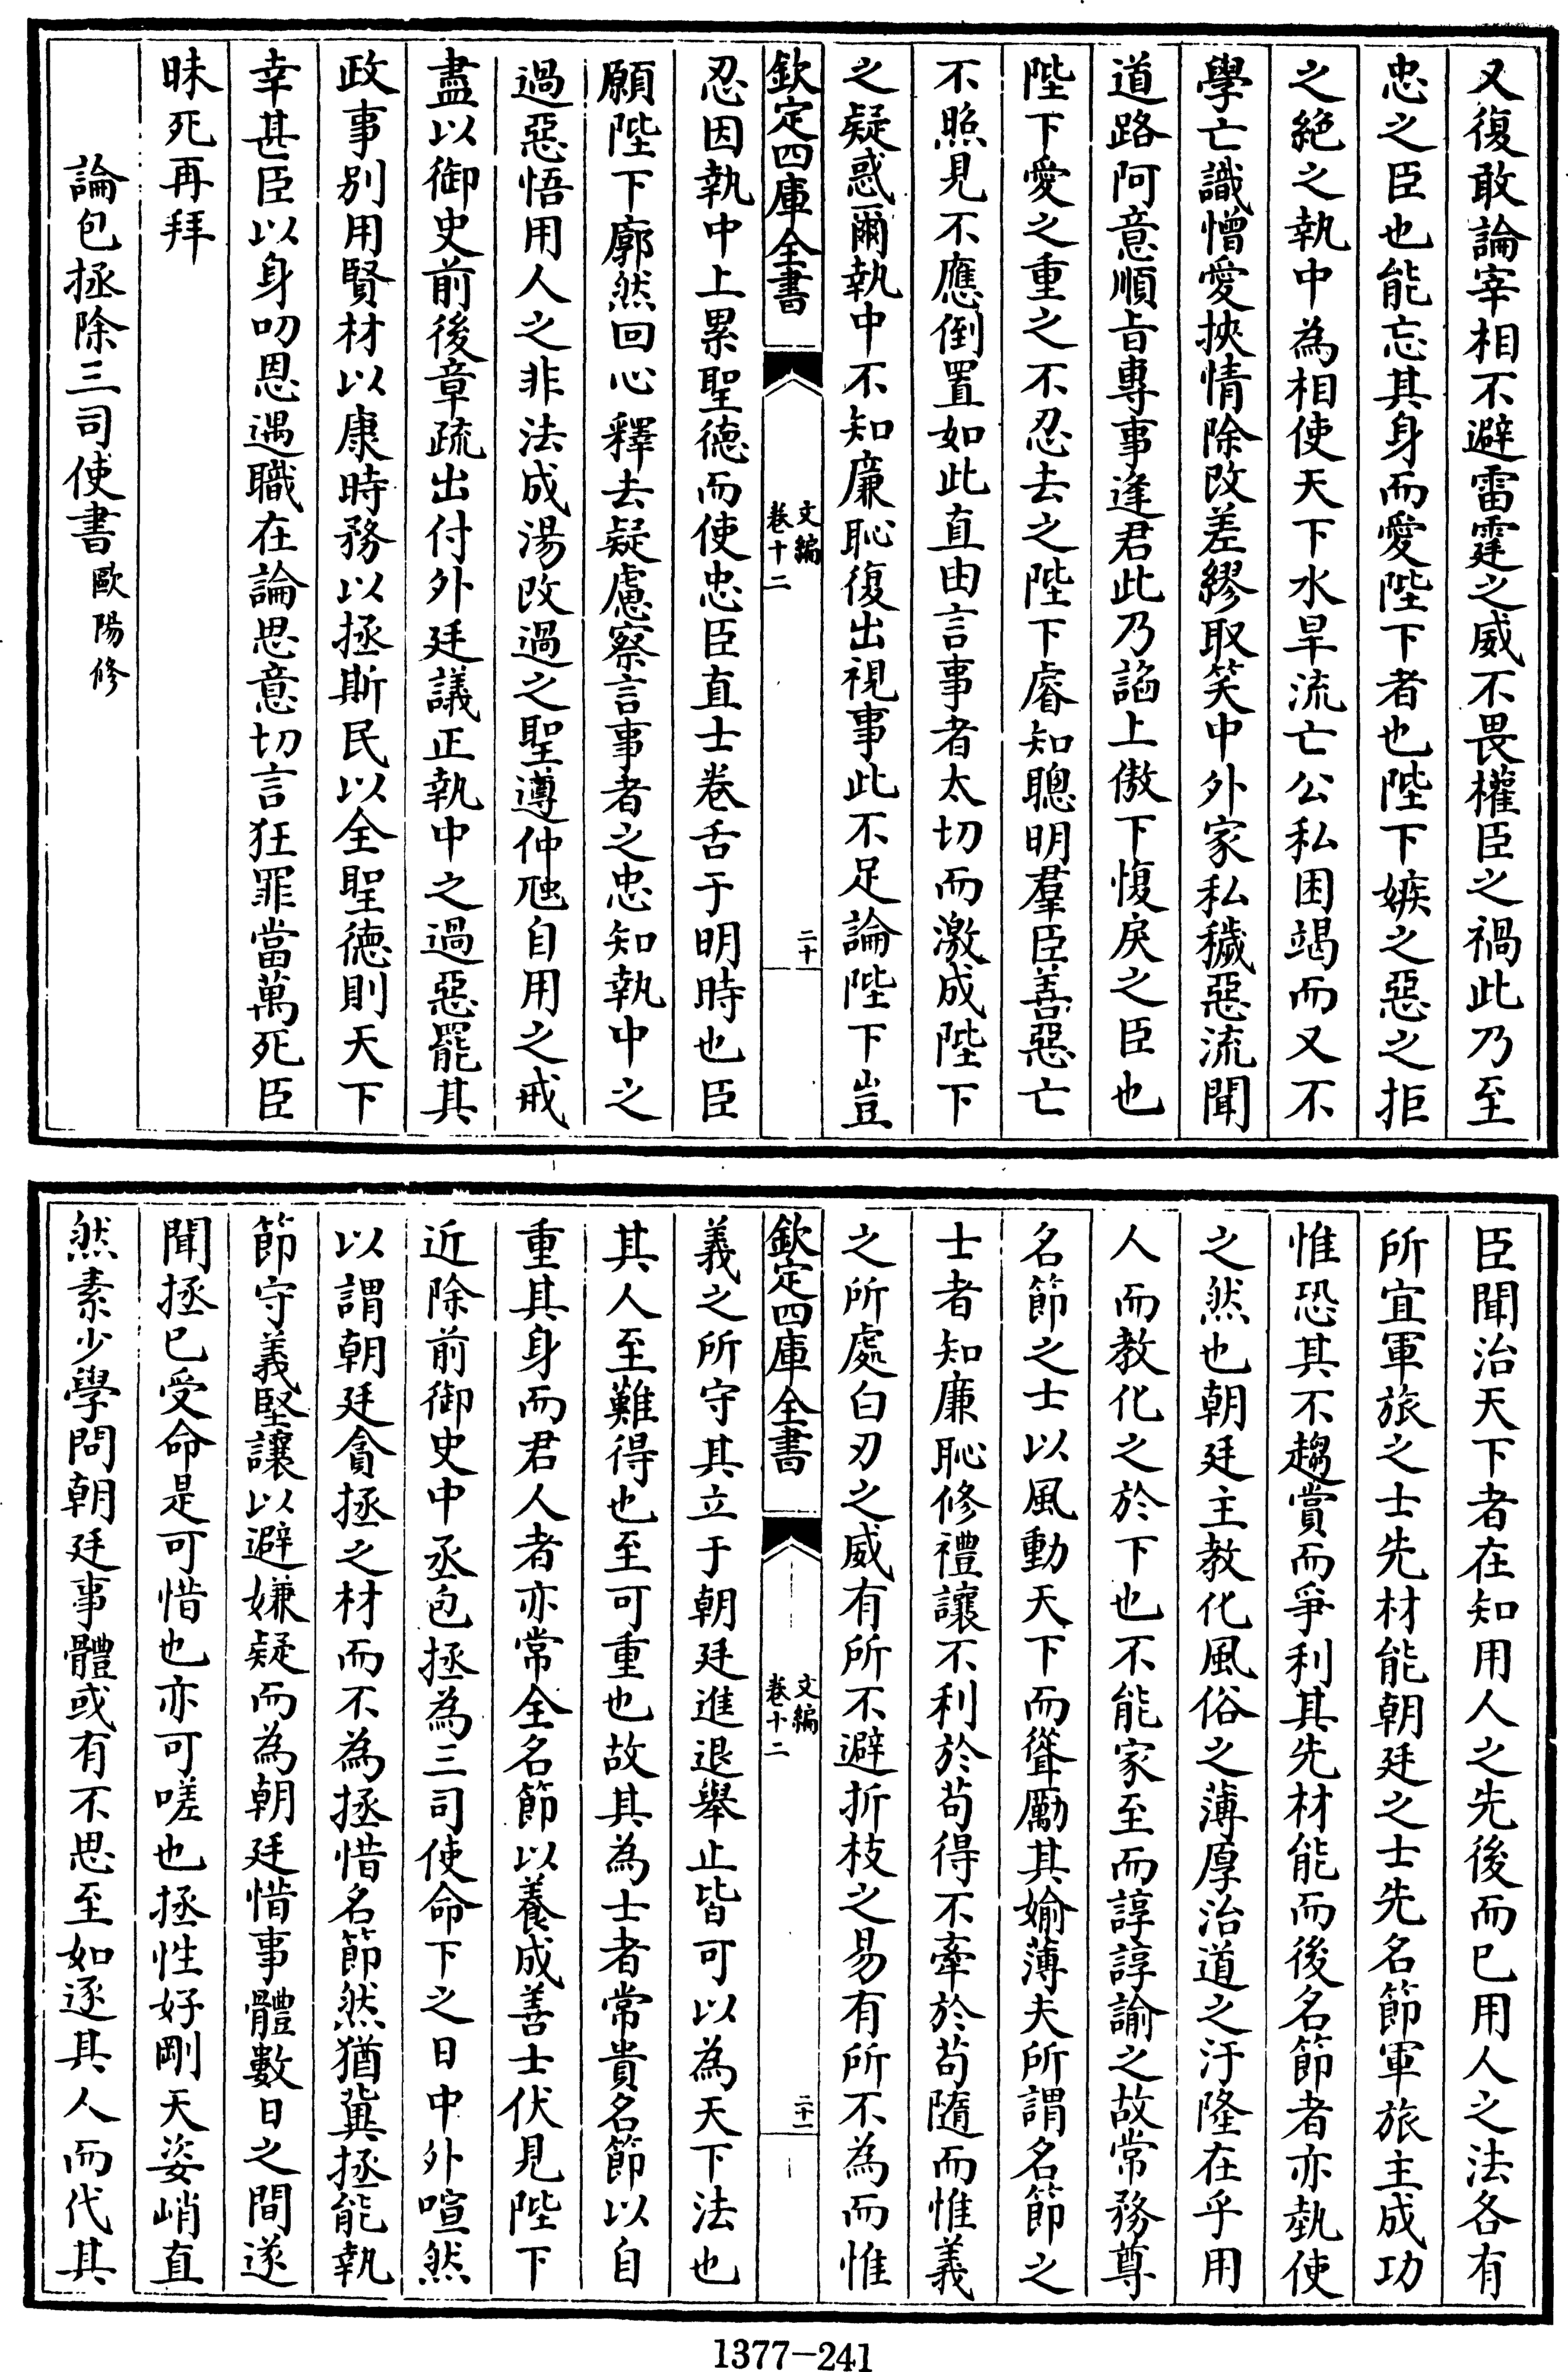 又復敢論宰相不避雷霆之威不畏權臣之禍此乃至
忠之臣也能忘其身而愛陛下者也陛下嫉之惡之拒
之絶之執中為相使天下水旱流亡公私困竭而又不
學亡識憎愛挾情除改差繆取笑中外家私穢惡流聞
道路阿意順㫖專事逢君此乃諂上傲下愎戾之臣也
陛下愛之重之不忍去之陛下睿知聰明羣臣善惡亡
不照見不應倒置如此直由言事者太切而激成陛下
之疑惑爾執中不知廉恥復出視事此不足論陛下豈
欽定四庫全書
文編
卷十二
二十
忍因執中上累聖德而使忠臣直士卷舌于明時也臣
願陛下廓然回心釋去疑慮察言事者之忠知執中之
過惡悟用人之非法成湯改過之聖遵仲虺自用之戒
盡以御史前後章疏出付外廷議正執中之過惡罷其
政事别用賢材以康時務以拯斯民以全聖德則天下
幸甚臣以身叨恩遇職在論思意切言狂罪當萬死臣
昧死再拜
論包拯除三司使書歐陽修
臣聞治天下者在知用人之先後而已用人之法各有
所宜軍旅之士先材能朝廷之士先名節軍旅主成功
惟恐其不趨賞而爭利其先材能而後名節者亦埶使
之然也朝廷主教化風俗之薄厚治道之汙隆在乎用
人而教化之於下也不能家至而諄諄諭之故常務尊
名節之士以風動天下而聳勵其媮薄夫所謂名節之
士者知廉恥修禮讓不利於苟得不牽於苟隨而惟義
之所處白刃之威有所不避折枝之易有所不為而惟
欽定四庫全書
文編
卷十二
二十一
義之所守其立于朝廷進退舉止皆可以為天下法也
其人至難得也至可重也故其為士者常貴名節以自
重其身而君人者亦常全名節以養成善士伏見陛下
近除前御史中丞包拯為三司使命下之日中外喧然
以謂朝廷貪拯之材而不為拯惜名節然猶冀拯能執
節守義堅讓以避嫌疑而為朝廷惜事體數日之間遂
聞拯已受命是可惜也亦可嗟也拯性好剛天姿峭直
然素少學問朝廷事體或有不思至如逐其人而代其
1377-241